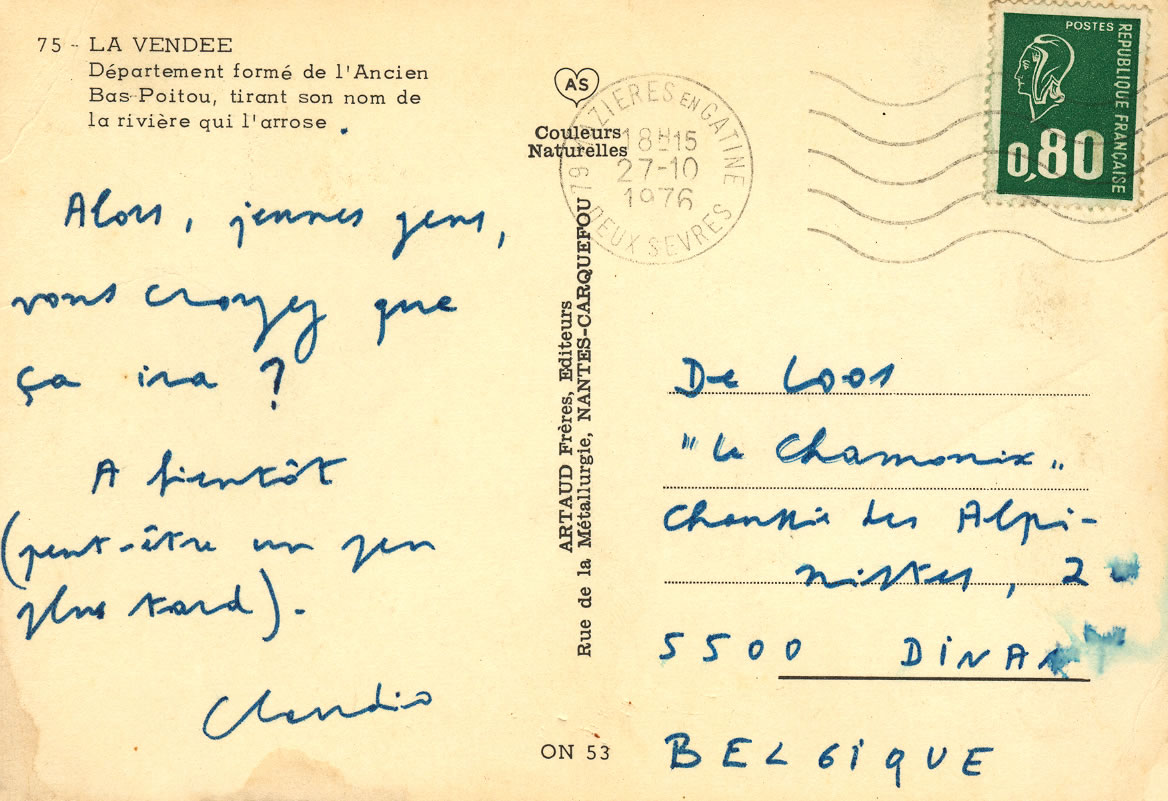 75 - LA VENDEE
Département formé de l'Ancien
Bas-Poitou, tirant son nom de
la rivière qui l'arrose
Alors, jeunes gens,
vous croyez que
ça ira ?
A bientôt
(peut-être un peu
plus tard).
Claudio
AS
Couleurs
Naturelles
ARTAUD Frères, Editeurs
Rue de la Métallurgie, NANTES-CARQUEFOU
ON 53
79 MAZIERES EN GATINE
18H15
27-10
1976
DEUX SEVRES
POSTES
REPUBLIQUE FRANÇAISE
0,80
De Loos
"Le Chamonix"
Chaussée des Alpi-
nistes, 2
5500 DINAN
BELGIQUE